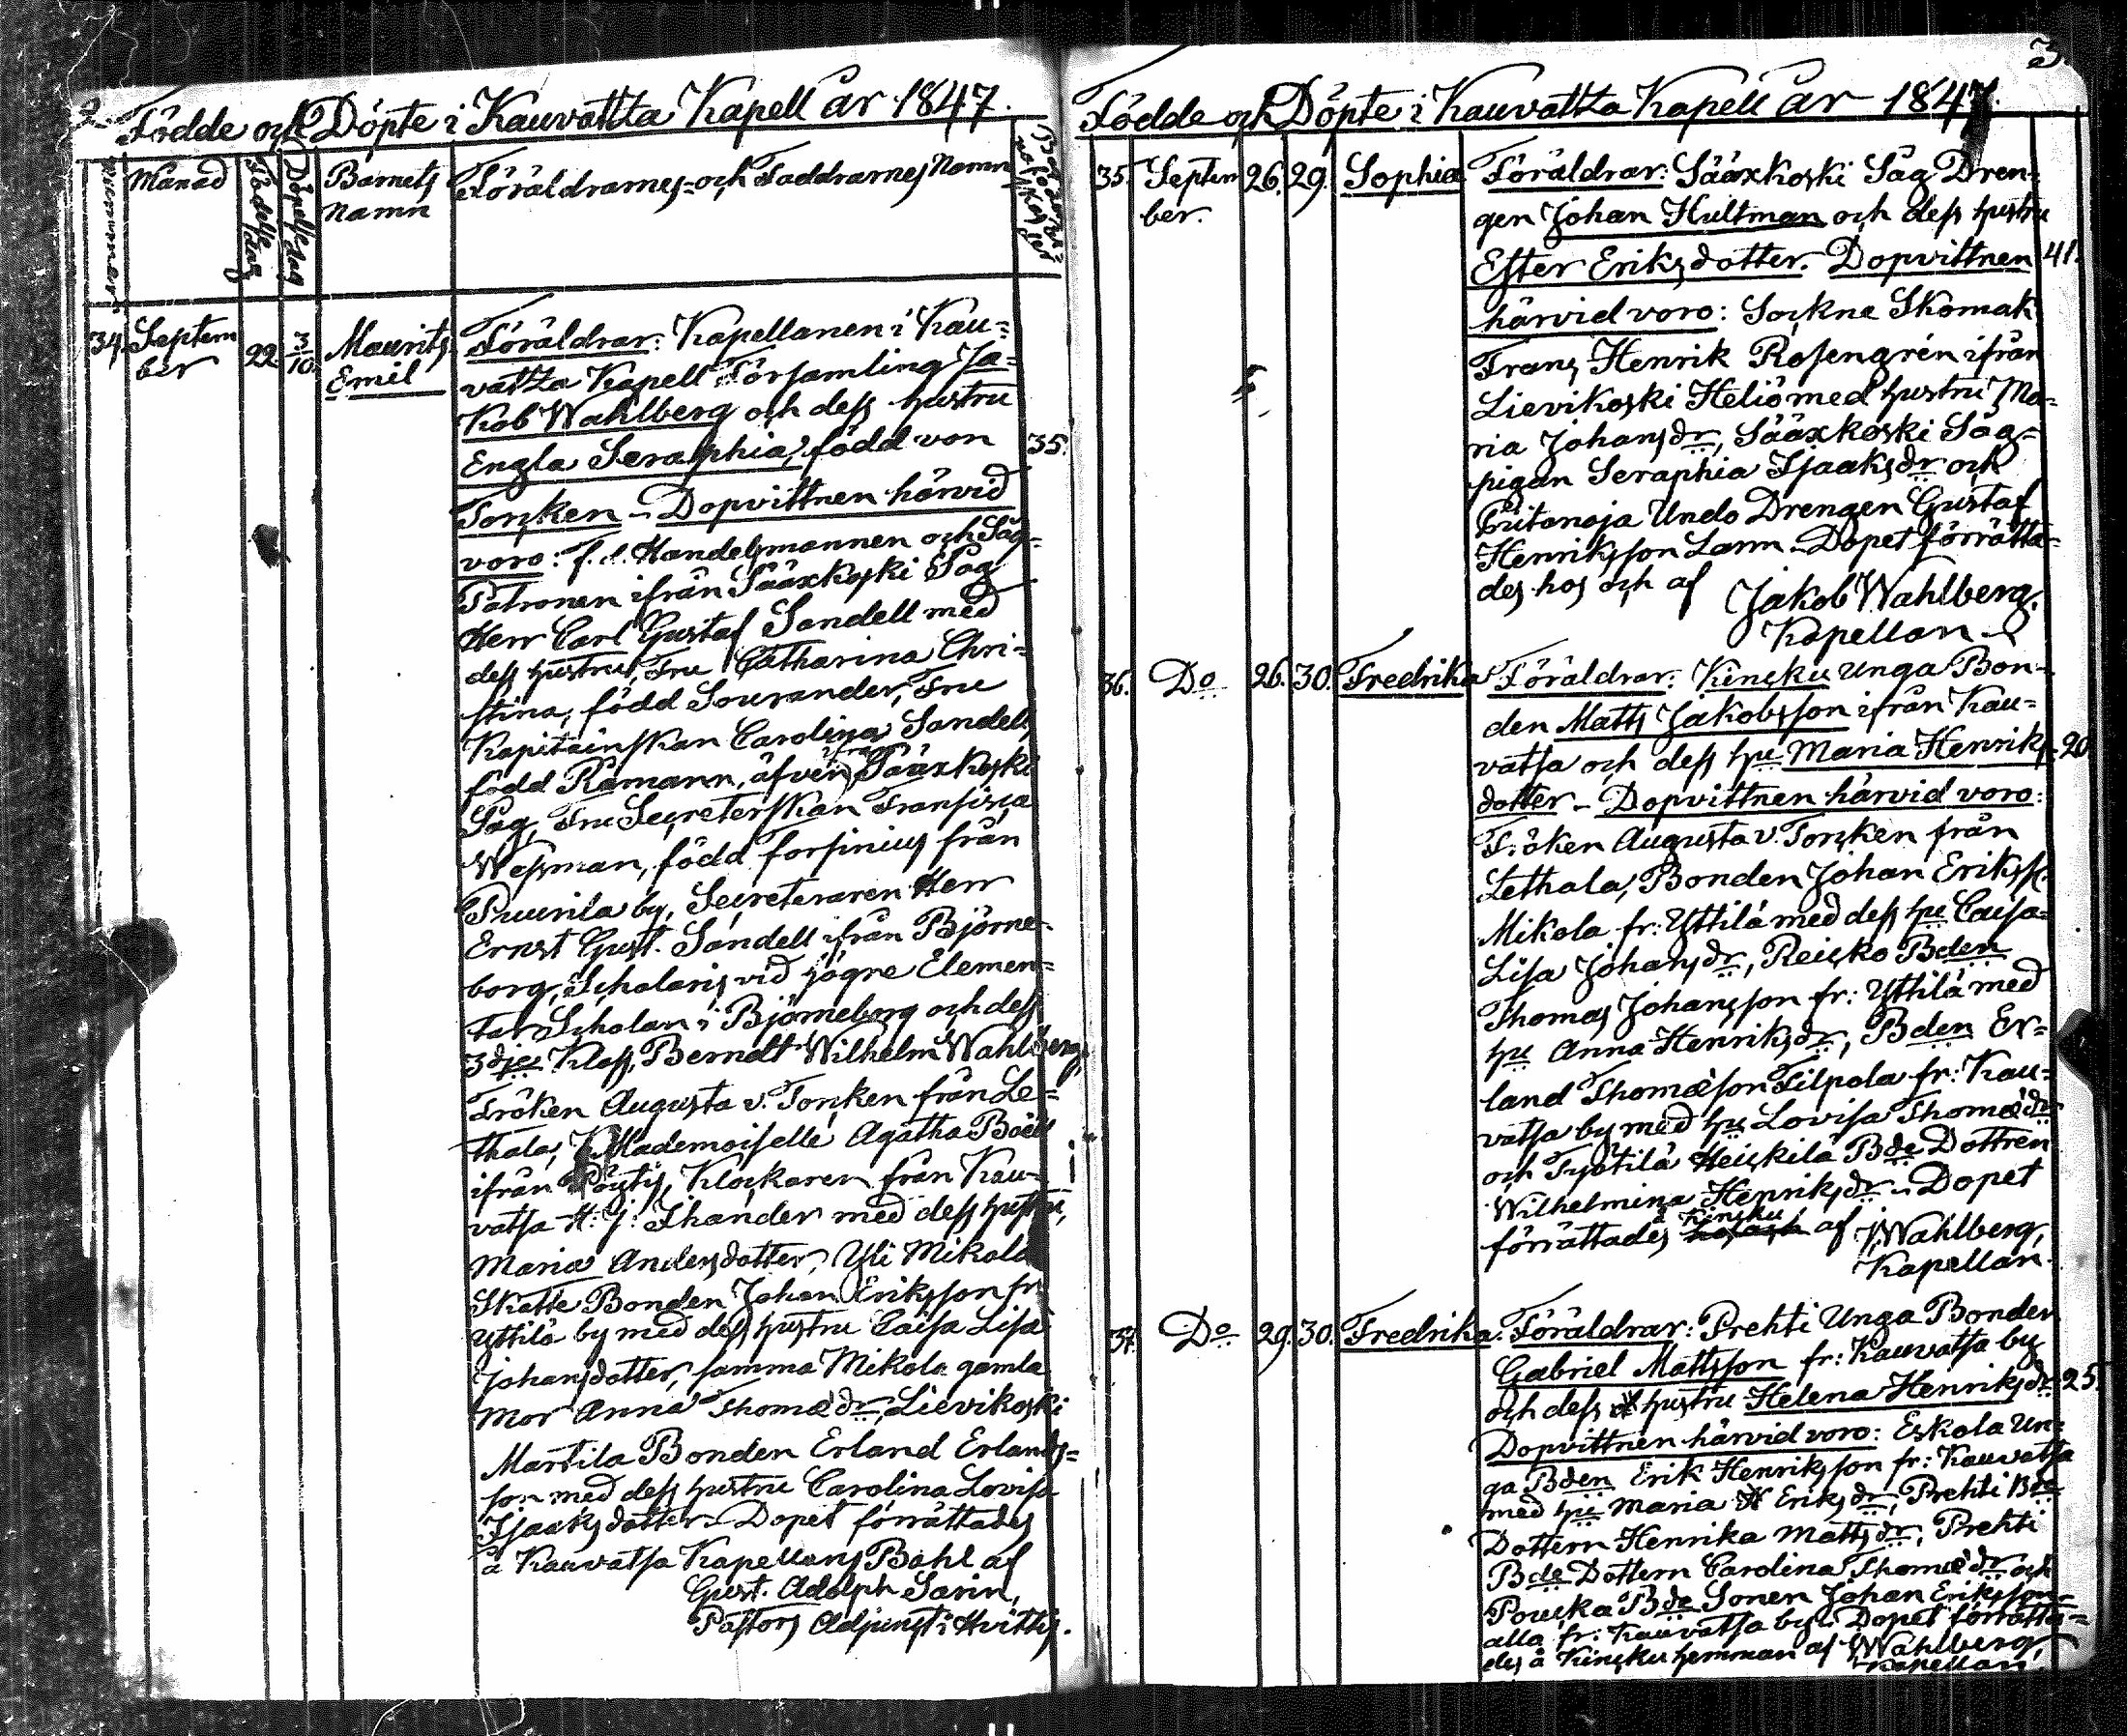 2.
Födde och Döpte i Kauvattza Kapell år 1847.
Månad
Födelse dag
Döpelse dag
Barnets namn
Föräldrarnes- och Faddrarnes Namn
34. September 22. 3/10. Maurits Emil
Föräldrar: Kapellanen i Kau=
vattza Kapell Församling Ja=
kob Wahlberg och dess hustru
Engla Seraphia, född von
35.
Torcken – Dopvittnen härvid
voro: f. d. Handelsmannen och Såg=
Patronen ifrån Sääxkoski Såg
Herr Carl Gustaf Sandell med
dess hustru, Fru Catharina Chri=
stina, född Sourander, Fru
Kapitainskan Carolina Sandell,
född Råmann, äfven ifrån Sääxkoski
Såg, Fru Secreterskan Fransisca
Wessman, född Forsinius från
Puurila by, Secreteraren Herr
Ernst Gust. Sandell ifrån Björne-
borg, Scholaris vid högre Elemen=
tar Scholan i Björneborg och dess
3dje Klass, Berndt Wilhelm Wahlberg,
Fröken Augusta v. Torcken från Le=
thala, Mademoiselle Agatha Boëll
ifrån Pöytis, Klockaren från Kau-
vatsa H: J: Ihander med dess hustru,
Maria Andersdotter, Yli Mikola
Skatte Bonden Johan Eriksson fr.
Yttilä by med dess hustru Caisa Lisa
Johansdotter, samma Mikola gamla
Mor Anna Thomædr, Lievikoski
Marttila Bonden Erland Erlands=
son med dess hustru Carolina Lovisa
Isaaksdotter. – Dopet förrättades
å Kauvatsa Kapellans Bohl af
Gust. Adolph Sarin,
Pastors Adjunct i Hvittis.
3.
Födde och Döpte i Kauvattza Kapell år 1847.
35. September. 26. 29. Sophia
Föräldrar: Sääxkoski Såg Dren=
gen Johan Hultman och dess hustru
Ester Eriksdotter. Dopvittnen
41.
härvid voro: Sockne Skomak.
Frans Henrik Rosengrén ifrån
Lievikoski Heliö med hustru Ma=
ria Johansdr, Sääxkoski Såg=
pigan Seraphia Isaaksdr och
Puitanoja Undo Drengen Gustaf
Henriksson Lann. – Dopet förrätta=
des hos och af Jakob Wahlberg.
Kapellan
36. Do 26. 30. Fredrika
Föräldrar: Kincku unga Bon-
den Matts Jakobsson ifrån Kau=
vatsa och dess hu Maria Henriks-
20
dotter – Dopvittnen härvid voro:
Fröken Augusta v. Torcken från
Lethala, Bonden Johan Erikss:
Mikola fr: Yttilä med dess hu Caisa-
Lisa Johansdr, Reicko Bden
Thomas Johansson fr: Yttilä med
hu Anna Henriksdr, Bden Er=
land Thomæson Filpola fr: Kau=
vatsa by med hu Lovisa Thomædr
och Työtilä Heickilä Bde Dottren
Wilhelmina Henriksdr – Dopet
förrättades Kincku af J. Wahlberg,
Kapellan.
37. Do 29. 30. Fredrika.
Föräldrar: Prehti Unga Bonden
Gabriel Mattsson fr: Kauvatsa by
och dess hustru Helena Henriksdr
25.
Dopvittnen härvid voro: Eskola Un-
ga Bden Erik Henriksson fr: Kauvatsa
med hu Maria Eriksdr, Prehti Bde
Dottern Henrika Mattsdr, Prehti
Bde Dottern Carolina Thomædr och
Poucka Bde Sonen Johan Eriksson
alla fr: Kauvatsa by. Dopet förrätta=
des å Kincku hemman af J. Wahlberg,
Kapellan.